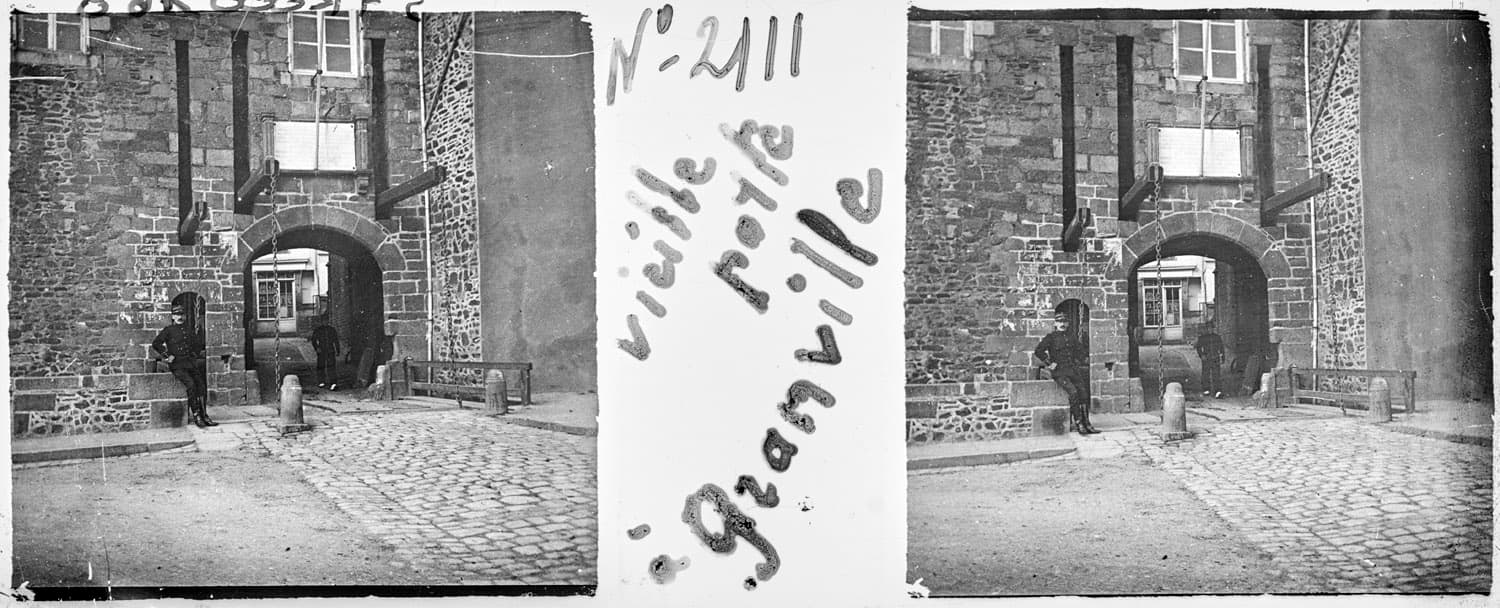 N°- 2111
vieille
porte
: Granville